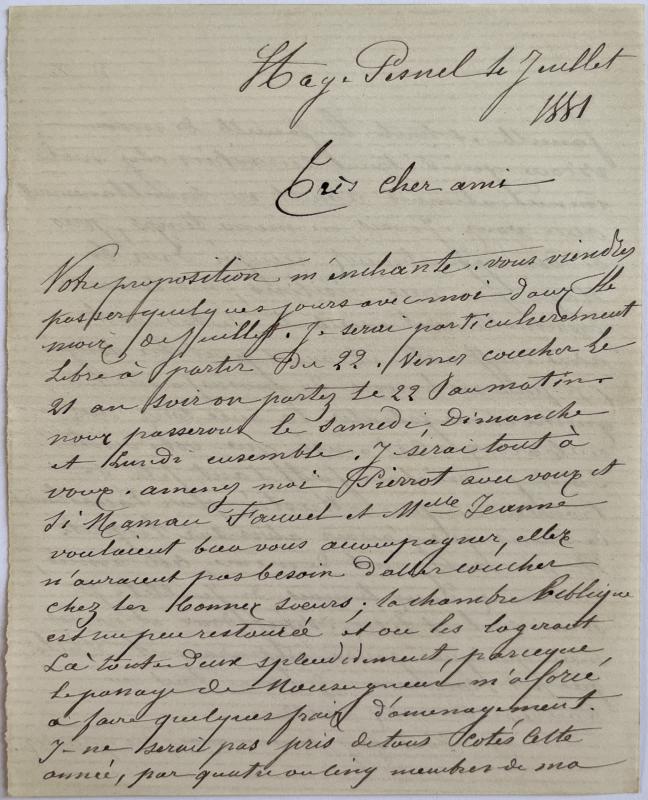 Hay-Pesnel le Juillet
1881
Très cher ami
Votre proposition m'enchante. vous viendrez
passer quelques jours avec moi dans le
mois de Juillet. Je serai particulièrement
libre à partir du 22. Venez coucher le
21 au soir ou partez le 22 au matin.
nous passerons le samedi, Dimanche
et Lundi ensemble. Je serai tout à
vous. amenez moi Pierrot avec vous et
si Maman Fauvel et Melle Jeanne
voulaient bien vous accompagner, elles
n'auraient pas besoin d'aller coucher
chez les bonnes soeurs; la chambre biblique
est un peu restaurée et on les logerait
là toutes deux splendidement, parceque
le passage de Monseigneur m'a forcé
à faire quelques frais d'aménagement.
Je ne serai pas pris de tous cotés cette
année, par quatre ou cinq membres de ma